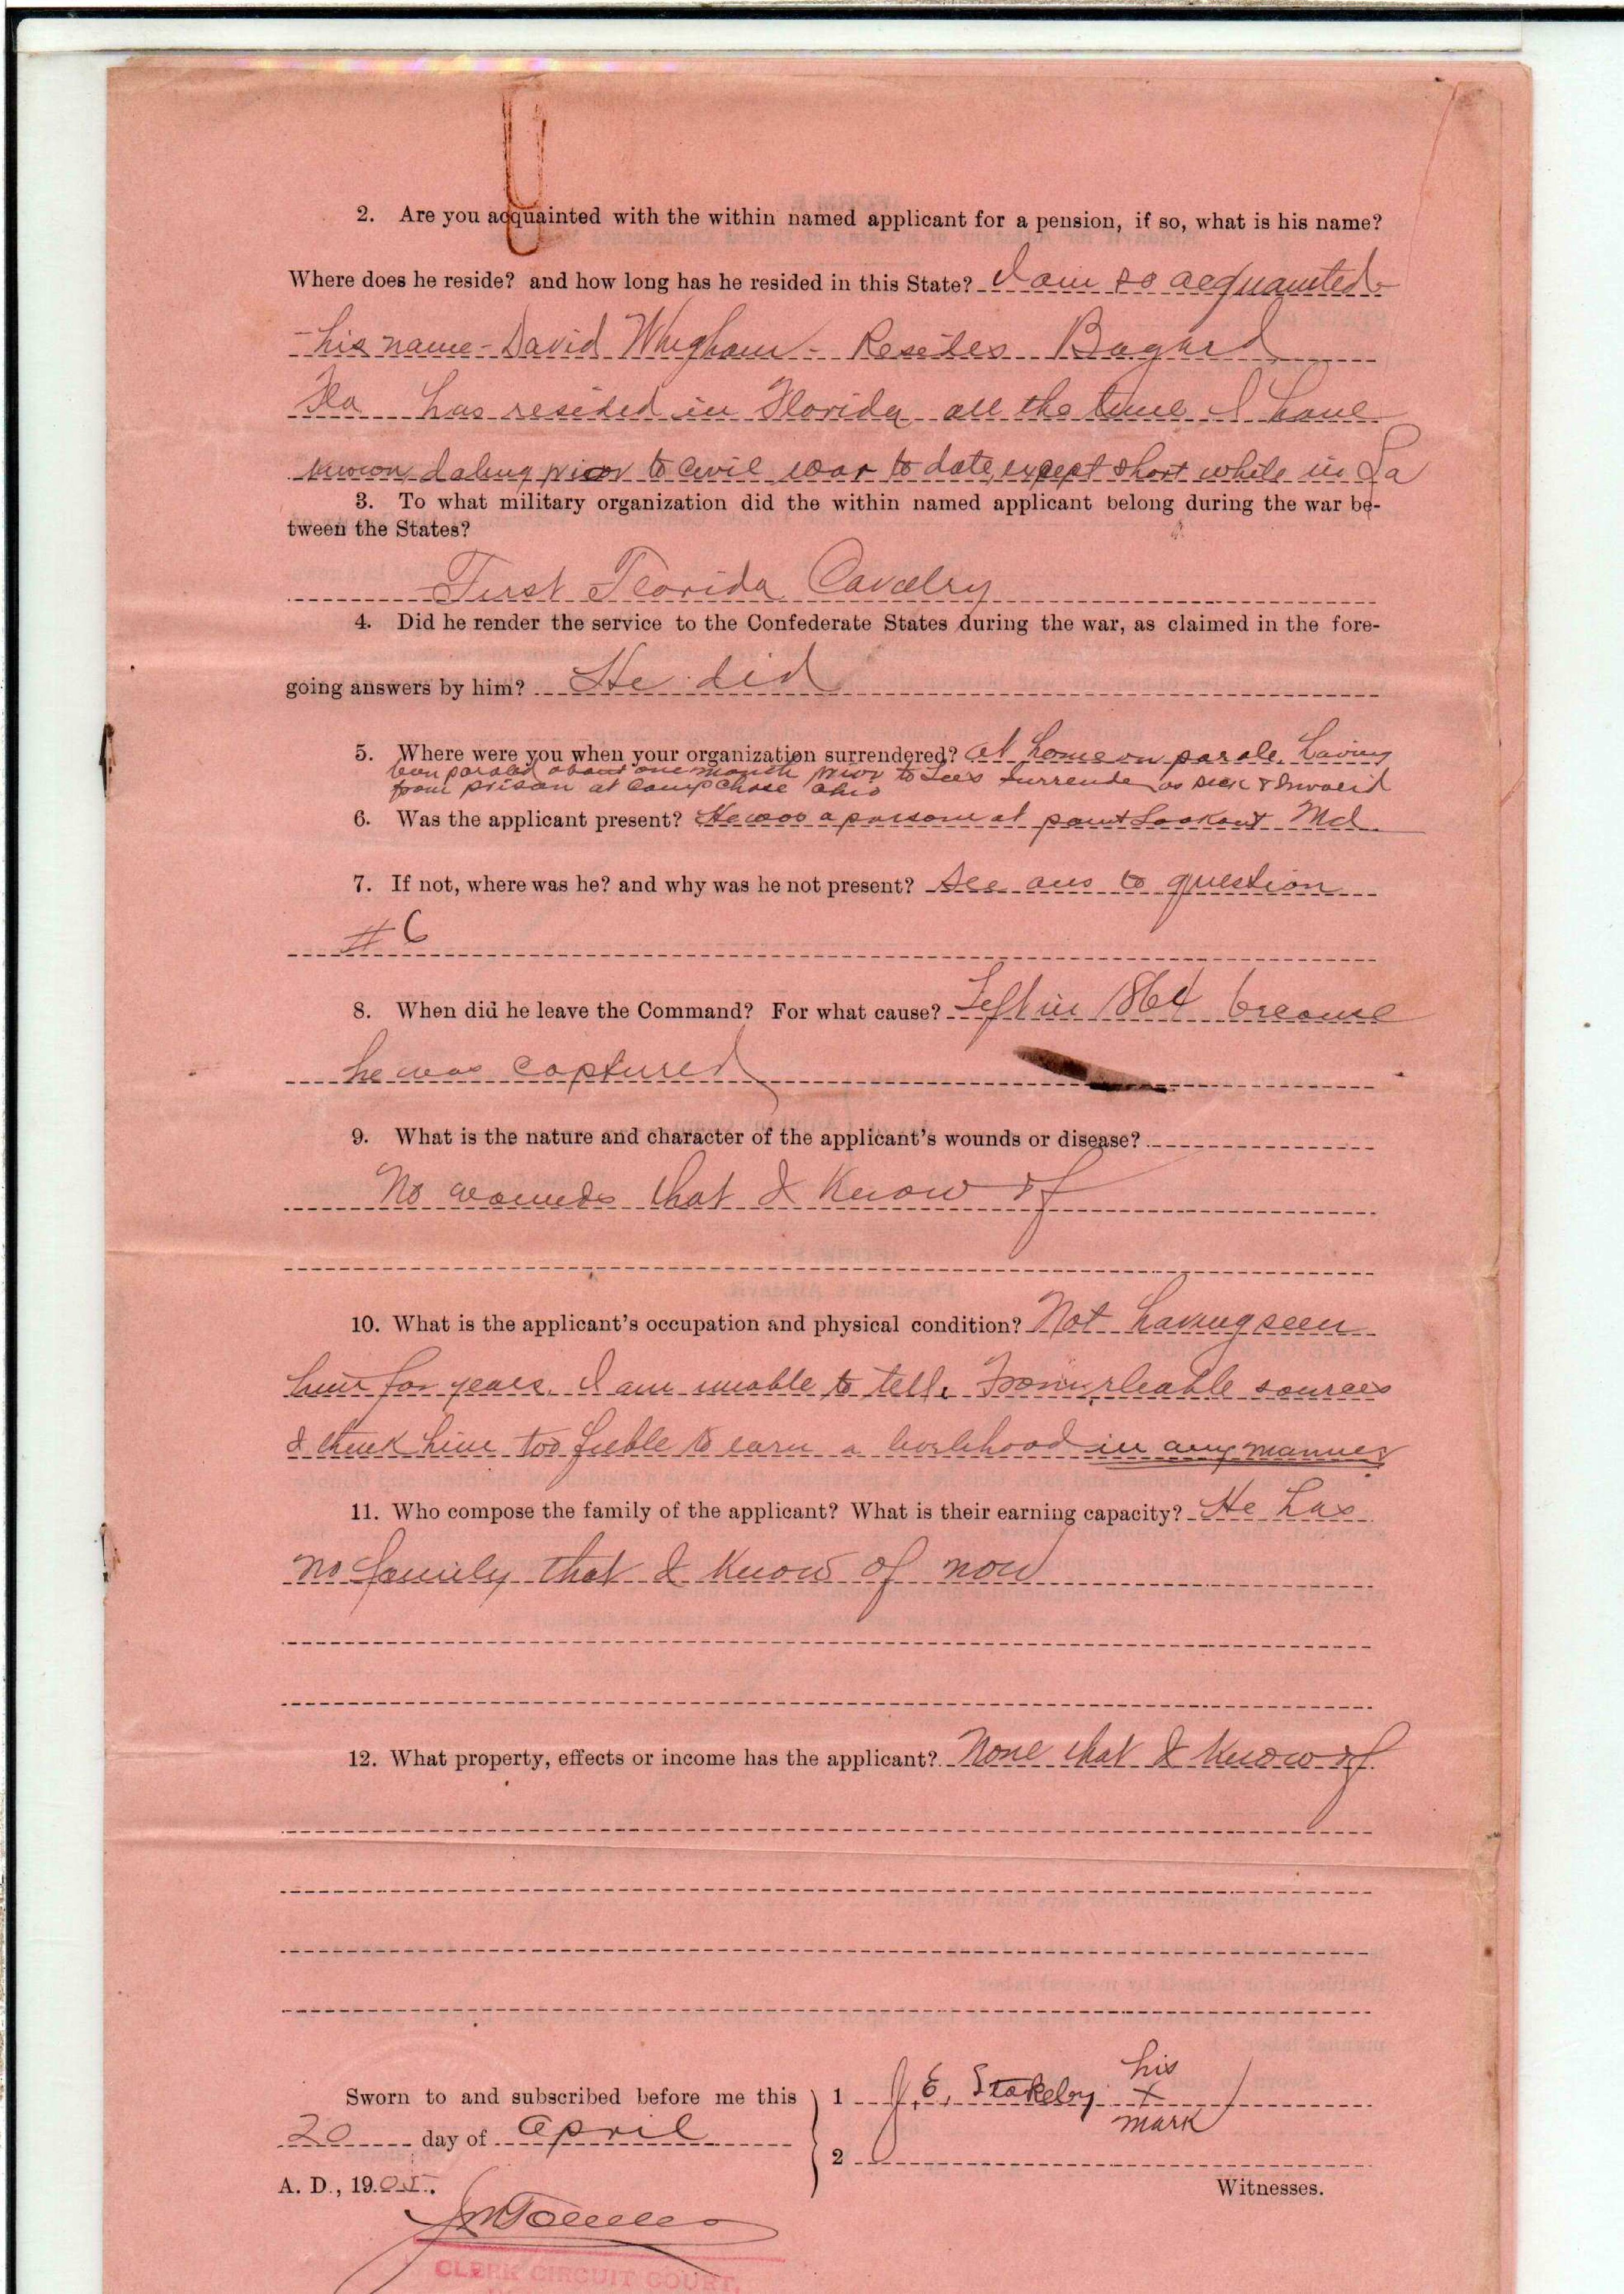 2. Are you acquainted with the within named applicant for a pension, if so, what is his name?
Where does he reside? and how long has he resided in this State? I am so acquainted
- his name - David Whigham - Resides Bogard
Fla has resided in Florida all the time I have
known dating prior to Civil war to date, except short while in La
3. To what military organization did the within named applicant belong during the war be-
tween the States?
First Florida Cavalry
4. Did he render the service to the Confederate States during the war, as claimed in the fore-
going answers by him? He did
5. Where were you when your organization surrendered? At home on parole. having
been paroled about one month prior to Lee's surrender as sick & Invalid
from prison at Camp Chase Ohio
6. Was the applicant present? He was a at point Lookout Md.
7. If not, where was he? and why was he not present? See ans to question
# 6
8. When did he leave the Command? For what cause? Left in 1864 because
he was captured
9. What is the nature and character of the applicant's wounds or disease?
No wounds that I know of
10. What is the applicant's occupation and physical condition? Not having seen
him for years. I am unable to tell. From reliable sources
I think him too feeble to earn a livelihood in any manner
11. Who compose the family of the applicant? What is their earning capacity? He has
no family that I know of now
12. What property, effects or income has the applicant? None that I know of
his
Sworn to and subscribed before me this 1 J. E. Stokeley x
mark
20 day of April
2
A. D., 1905.
Witnesses.
CLERK CIRCUIT COURT,